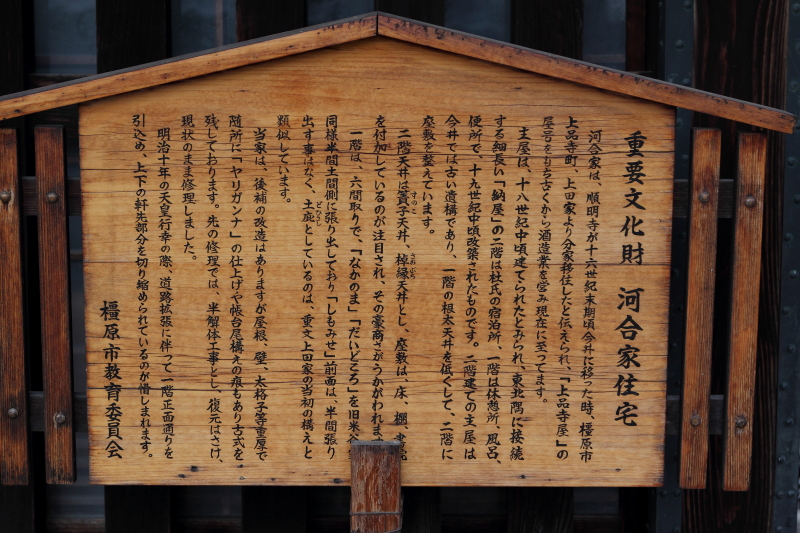 重要文化財　河合家住宅
河合家は、順明寺が十六世紀末期頃今井に移った時、橿原市
上品寺町、上田家より分家移住したと伝えられ、「上品寺屋」の
屋号をもち古くから酒造業を営み現在に至ってます。
主屋は、十八世紀中頃建てられたとみられ、東北隅に接続
する細長い「納屋」の二階は杜氏の宿泊所、一階は休憩所、風呂、
便所で、十九世紀中頃改築されたものです。二階建ての主屋は
今井では古い遺構であり、一階の根太天井を低くして、二階に
座敷を整えています。
二階天井は簀子天井、棹縁天井とし、座敷は、床、棚、
すのこ
さおぶち
を付加しているのが注目され、その豪商さがうかがわれます
一階は、六間取りで、「なかのま」「だいどころ」を旧米谷
同様半間土間側に張り出しており「しもみせ」前面は、半間張り
出す事はなく、土庇としているのは、重文上田家の当初の構えと
どびさし
類似しています。
当家は、後補の改造はありますが屋根、壁、太格子等重厚で
随所に「ヤリガンナ」の仕上げや帳台屋構えの痕もあり古式を
残しております。先の修理では、半解体工事とし、復元はさけ、
現状のまま修理しました。
明治十年の天皇行幸の際、道路拡張に伴って一階正面通りを
引込め、上下の軒先部分を切り縮められているのが惜しまれます。
橿原市教育委員会